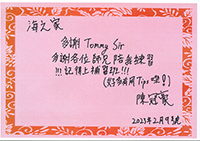 海之家
多謝 Tommy Sir
多謝各位師兄陪我練習
!!!記得上補習班!!!
(好多有用Tips 哩!)
陳冠
2023年2月9號